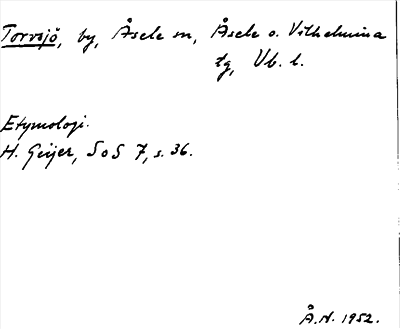 Torvsjö, by, Åsele sn, Åsele o. Vilhelmina
tg, Vb. l.
Etymologi.
H. Geijer, SoS 7, s. 36.
Å.N. 1952.